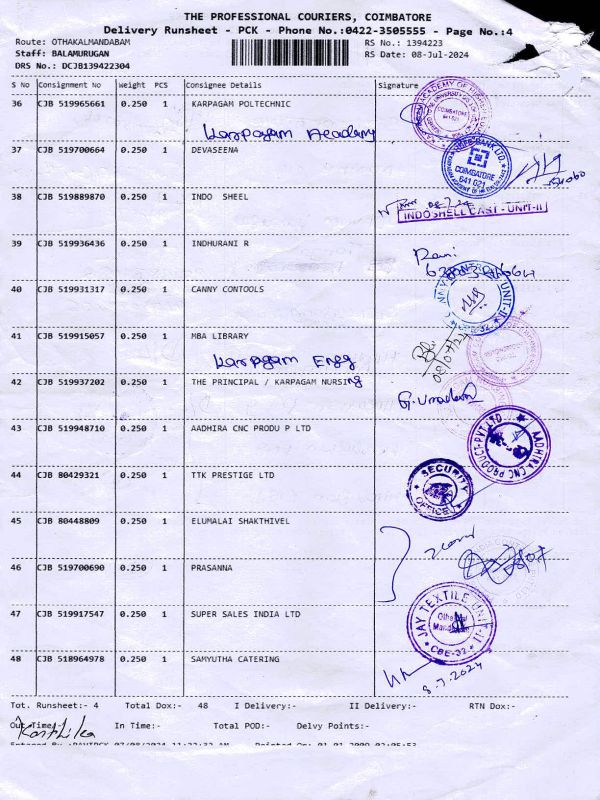 THE PROFESSIONAL COURIERS, COIMBATORE
Delivery Runsheet - PCK - Phone No.:0422-3505555 - Page No.:4
Route: OTHAKALMANDABAM RS No.: 1394223
Staff: BALAMURUGAN RS Date: 08-Jul-2024
DRS No.: DCJB139422304
S No Consignment No Weight PCS Consignee Details Signature
36 CJB 519965661 0.250 1 KARPAGAM POLTECHNIC
Karpagam Academy
COIMBATORE
37 CJB 519700664 0.250 1 DEVASEENA
BANK LTD.
COIMBATORE
641 021
38 CJB 519889870 0.250 1 INDO SHEEL
INDOSHELL CAST - UNIT-II
39 CJB 519936436 0.250 1 INDHURANI R
Rani
40 CJB 519931317 0.250 1 CANNY CONTOOLS
UNIT-II
CBE-32
41 CJB 519915057 0.250 1 MBA LIBRARY
Karpagam Engg
08/07/24
42 CJB 519937202 0.250 1 THE PRINCIPAL / KARPAGAM NURSING
43 CJB 519948710 0.250 1 AADHIRA CNC PRODU P LTD
AADHIRA CNC PRODUCT PVT LTD
44 CJB 80429321 0.250 1 TTK PRESTIGE LTD
SECURITY OFFICER
45 CJB 80448809 0.250 1 ELUMALAI SHAKTHIVEL
46 CJB 519700690 0.250 1 PRASANNA
47 CJB 519917547 0.250 1 SUPER SALES INDIA LTD
JAY TEXTILE UNIT-II
CBE-32
48 CJB 518964978 0.250 1 SAMYUTHA CATERING
8.7.2024
Tot. Runsheet:- 4 Total Dox:- 48 I Delivery:- II Delivery:- RTN Dox:-
Out Time:- In Time:- Total POD:- Delvy Points:-
Karthika